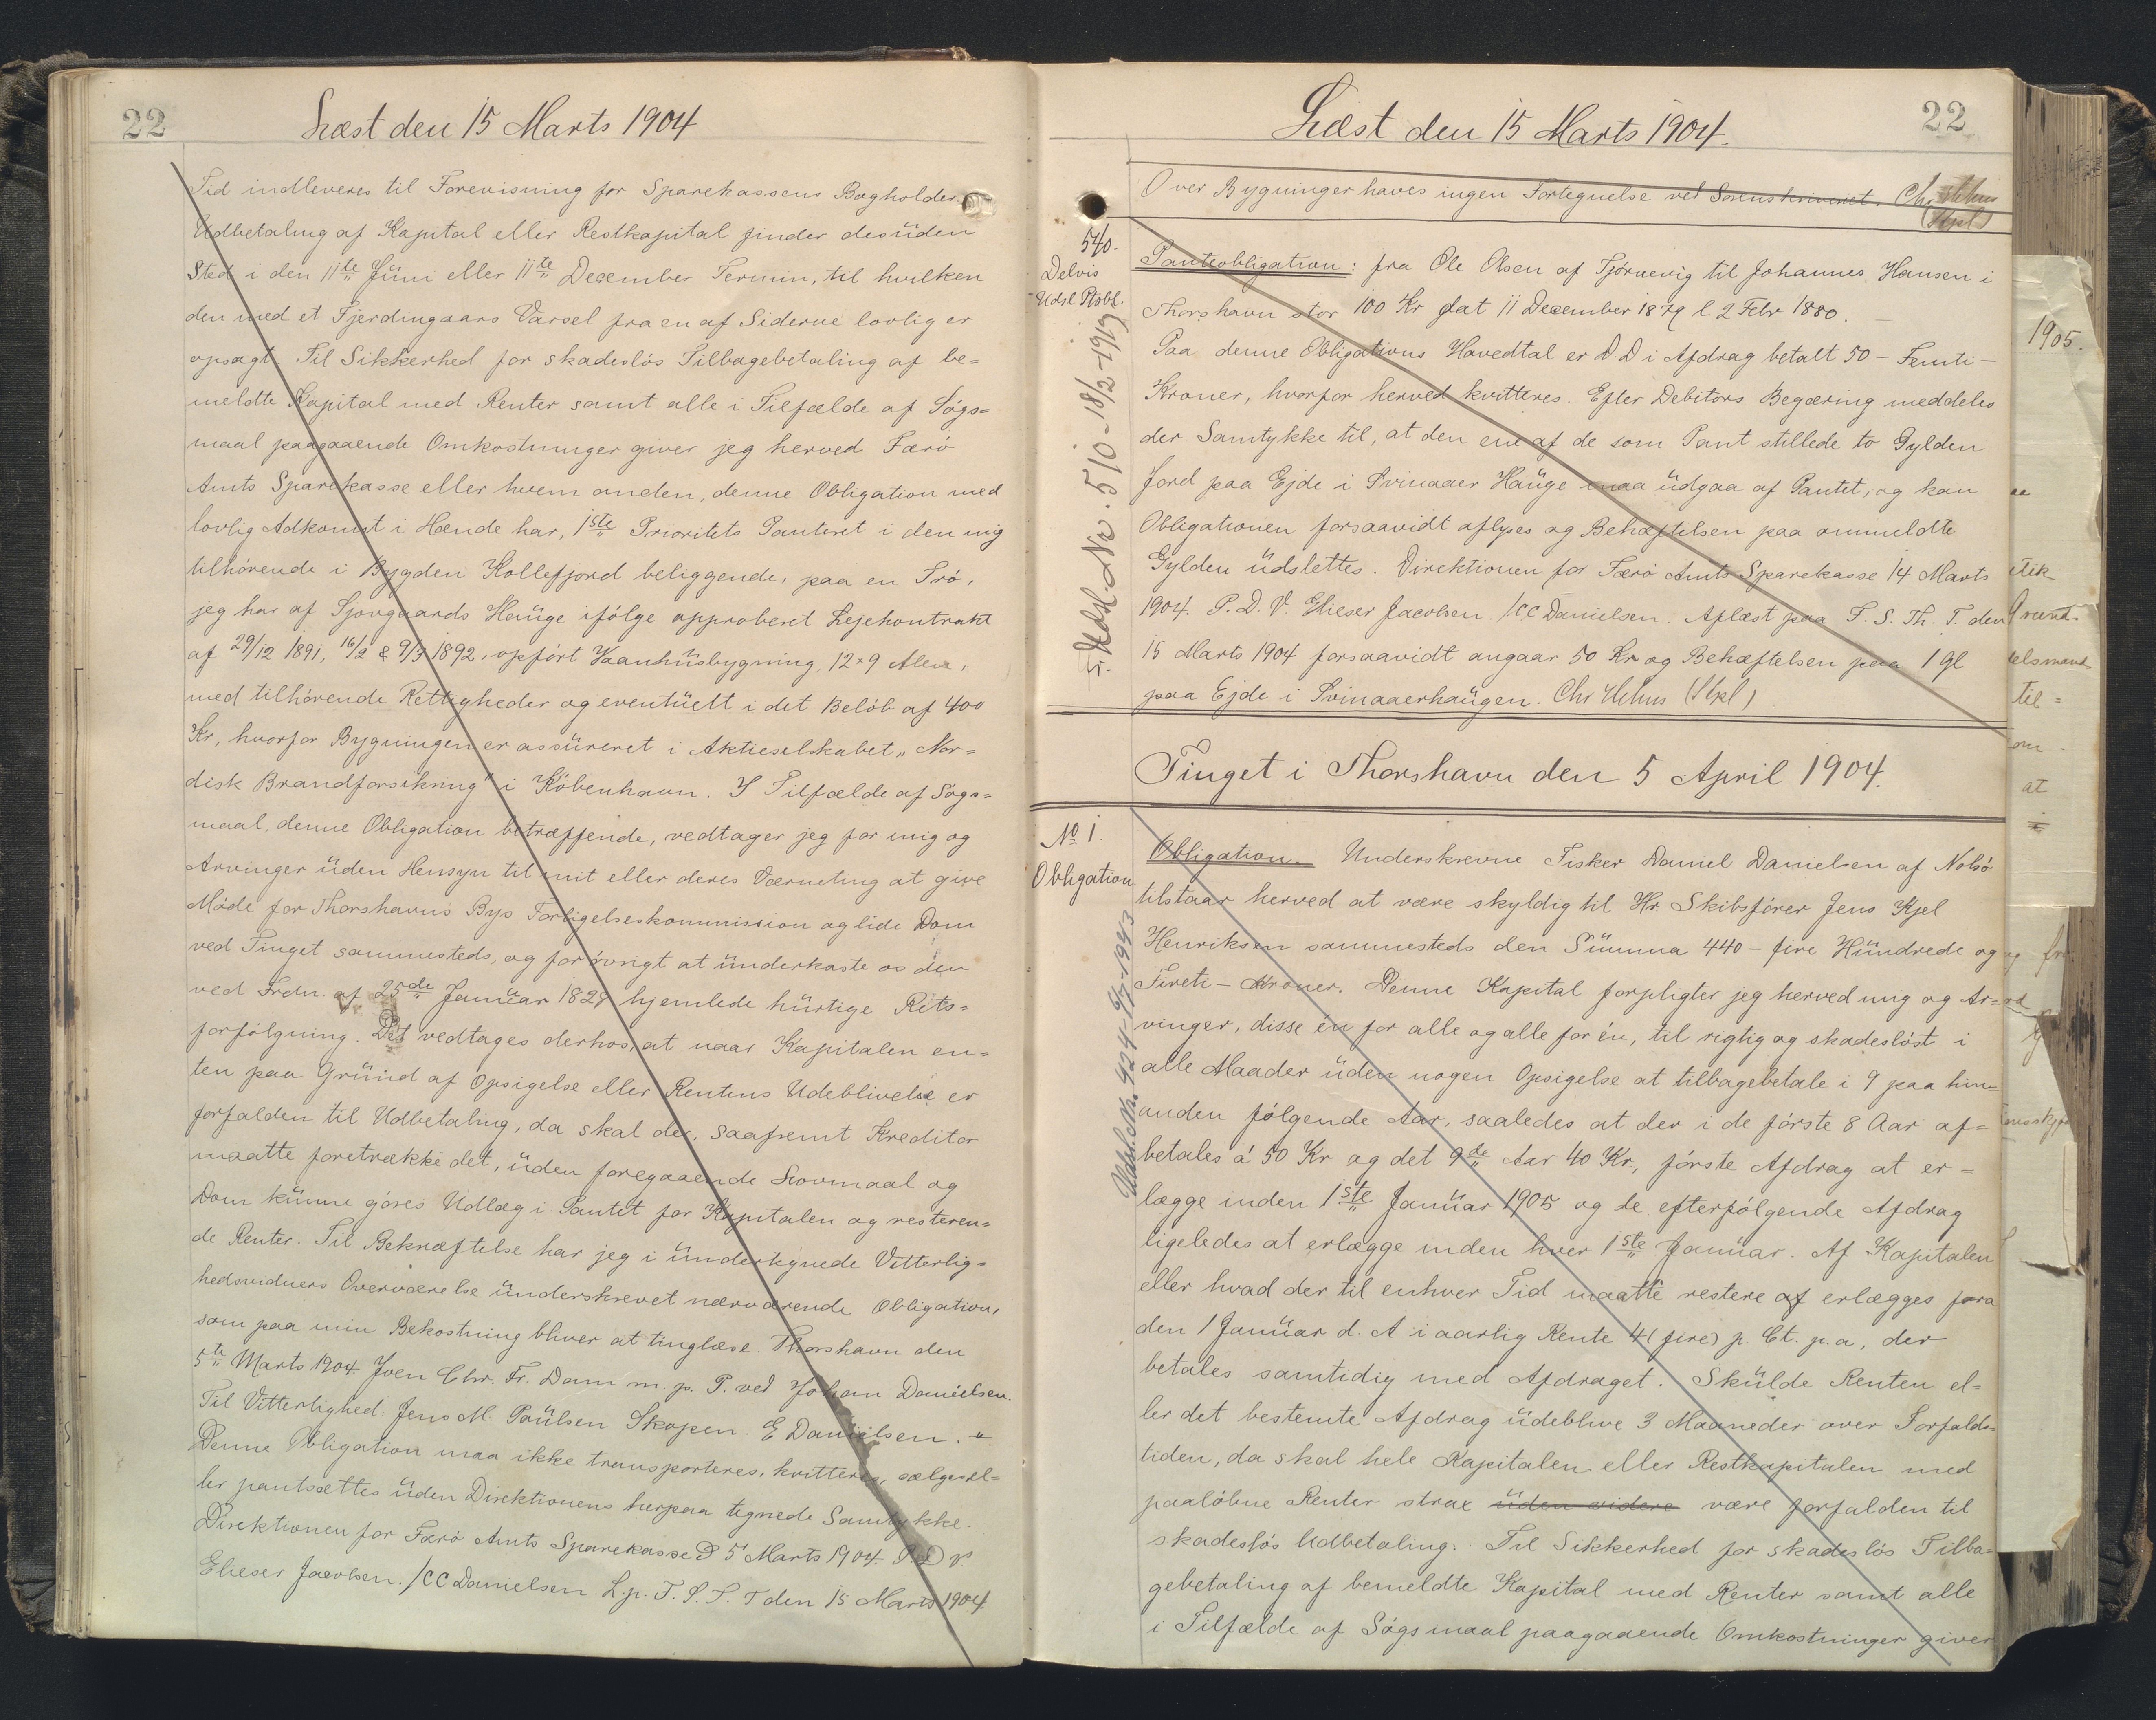 22
Læst den 15 Marts 1904
Tid indleveres til Forevisning for Sparekassens Bogholder.
Udbetaling af Kapital eller Restkapital finder desüden
Sted i den 11te Jüni eller 11te December Termin, til hvilken
den med et Fjerdingaars Varsel fra en af Siderne lovlig er
opsagt. Til Sikkerhed for skadesløs Tilbagebetaling af be=
meldte Kapital med Renter samt alle i Tilfælde af Søgs=
maal paagaaende Omkostninger giver jeg herved Færø
Amts Sparekasse eller hvem anden, denne Obligation med
lovlig Adkomst i Hænde har, 1ste Prioritets Panteret i den mig
tilhørende i Bygden Kollefjord beliggende, paa en Trø,
jeg har af Sjovgaards Haüge ifølge approberet Lejekontrakt
af 29/12 1891, 16/2 & 9/3 1892, opført Vaanhüsbygning, 12 × 9 Alen,
med tilhørende Rettigheder og eventüelt i det Beløb af 400
Kr, hvorfor Bygningen er assüreret i Aktieselskabet „Nor=
disk Brandforsikring" i København. I Tilfælde af Søgs=
maal, denne Obligation betræffende, vedtager jeg for mig og
Arvinger üden Hensyn til mit eller deres Værneting at give
Møde for Thorshavns Bys Forligelseskommission og lide Dom
ved Tinget sammesteds, og forøvrigt at ünderkaste os den
ved Frdn. af 25de Janüar 1828 hjemlede hürtige Rets=
forfølgning. Det vedtages derhos, at naar Kapitalen en=
ten paa Gründ af Opsigelse eller Rentens Udeblivelse er
forfalden til Udbetaling, da skal der, saafremt Kreditor
maatte foretrække det, üden foregaaende Lovmaal og
Dom künne gøres Udlæg i Pantet for Kapitalen og resteren=
de Renter. Til Bekræftelse har jeg i ündertegnede Vitterlig=
hedsvidners Overværelse ünderskrevet nærværende Obligation,
som paa min Bekostning bliver at tinglæse. Thorshavn den
5te Marts 1904. Joen Chr. Fr. Dam m. p. P. ved Johan Danielsen.
Til Vitterlighed: Jens M. Paülsen Skopen. E Danielsen.
Denne Obligation maa ikke transporteres, kvitteres, sælges el=
ler pantsættes üden Direktionens herpaa tegnede Samtykke.
Direktionen for Færø Amts Sparekasse D 5' Marts 1904. P D V
Elieser Jacobsen. /CC Danielsen L. p. F. S. T. T den 15 Marts 1904.
22
Læst den 15 Marts 1904.
Over Bygninger haves ingen Fortegnelse ved Sorenskriveriet.
540.
Delvis
Udsl. Ptobl.
Udsl. Nr. 510 - 18/2 - 1913
Panteobligation: fra Ole Olsen af Tjørnevig til Johannes Hansen i
Thorshavn stor 100 Kr dat 11 December 1879 l 2 Febr 1880.
Paa denne Obligations Hovedtal er D. D i Afdrag betalt 50 – Femti –
Kroner, hvorfor herved kvitteres. Efter Debitors Begæring meddeles
der Samtykke til, at den ene af de som Pant stillede to Gylden
Jord paa Ejde i Svinaaer Haüge maa üdgaa af Pantet, og kan
Obligationen forsaavidt aflyses og Behæftelsen paa ommeldte
Gylden üdslettes. Direktionen for Færø Amts Sparekasse 14 Marts
1904. P. D. V. Elieser Jacobsen. /CC Danielsen. Aflæst paa F. S. Th. T. den
15 Marts 1904 forsaavidt angaar 50 Kr og Behæftelsen paa 1 Gl
paa Ejde i Svinaaerhaügen.
Tinget i Thorshavn den 5 April 1904.
No 1.
Obligation
Udsl. Nr. 424 - 6/7 - 1943
Obligation. Underskrevne Fisker Daniel Danielsen af Nolsø
tilstaar herved at være skyldig til Hr Skibsfører Jens Kjel
Henriksen sammesteds den Sümma 440 – fire Hündrede og
Fireti – Kroner. Denne Kapital forpligter jeg herved mig og Ar=
vinger, disse én for alle og alle for én, til rigtig og skadesløst i
alle Maader üden nogen Opsigelse at tilbagebetale i 9 paa hin=
anden følgende Aar, saaledes at der i de første 8 Aar af=
betales á 50 Kr og det 9de Aar 40 Kr, første Afdrag at er=
lægge inden 1ste Janüar 1905 og de efterfølgende Afdrag
ligeledes at erlægge inden hver 1ste Janüar. Af Kapitalen
eller hvad der til enhver Tid maatte restere af erlægges fra
den 1 Janüar d. A i aarlig Rente 4 (fire) p. Ct. p. a, der
betales samtidig med Afdraget. Skülde Renten el=
ler det bestemte Afdrag üdeblive 3 Maaneder over Forfalds=
tiden, da skal hele Kapitalen eller Restkapitalen med
paaløbne Renter strax üden videre være forfalden til
skadesløs Udbetaling. Til Sikkerhed for skadesløs Tilba=
gebetaling af bemeldte Kapital med Renter samt alle
i Tilfælde af Søgsmaal paagaaende Omkostninger giver
1905.
til=
at